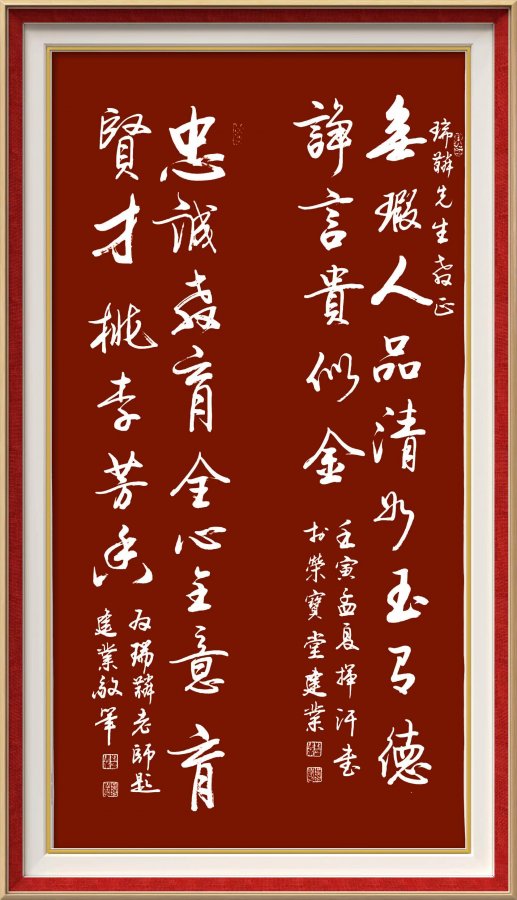 瑞麟先生教正
無瑕人品清如玉有德
諍言貴似金
壬寅孟夏揮汗書
於榮寶堂建業
忠誠教育全心全意育
賢才桃李芳香
為瑞麟老師題
建業敬筆